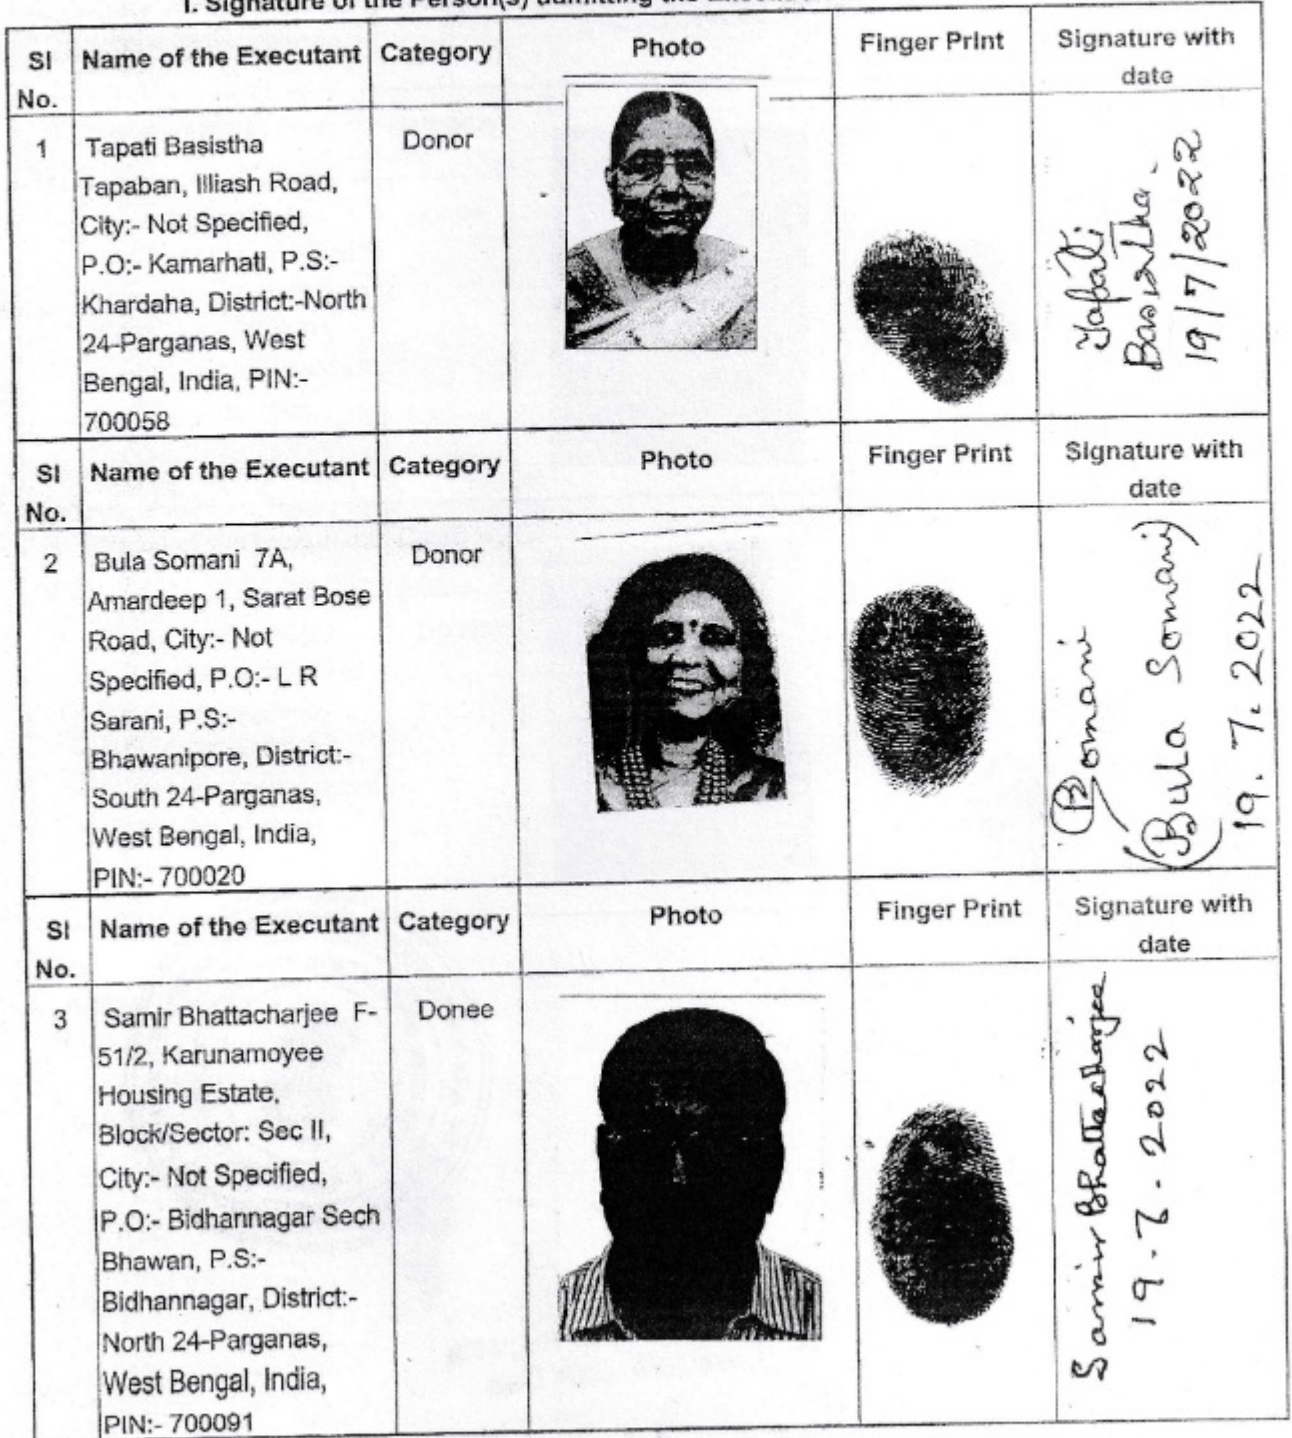 I. Signature of the Person(s) admitting the
Sl No. Name of the Executant Category Photo Finger Print Signature with date
1 Tapati Basistha Donor
Tapaban, Illiash Road,
City:- Not Specified,
P.O:- Kamarhati, P.S:-
Khardaha, District:-North
24-Parganas, West
Bengal, India, PIN:-
700058
Tapati
Basistha.
19/7/2022
Sl No. Name of the Executant Category Photo Finger Print Signature with date
2 Bula Somani 7A, Donor
Amardeep 1, Sarat Bose
Road, City:- Not
Specified, P.O:- L R
Sarani, P.S:-
Bhawanipore, District:-
South 24-Parganas,
West Bengal, India,
PIN:- 700020
BSomani
(Bula Somani)
19.7.2022
Sl No. Name of the Executant Category Photo Finger Print Signature with date
3 Samir Bhattacharjee F- Donee
51/2, Karunamoyee
Housing Estate,
Block/Sector: Sec II,
City:- Not Specified,
P.O:- Bidhannagar Sech
Bhawan, P.S:-
Bidhannagar, District:-
North 24-Parganas,
West Bengal, India,
PIN:- 700091
Samir Bhattacharjee
19-7-2022